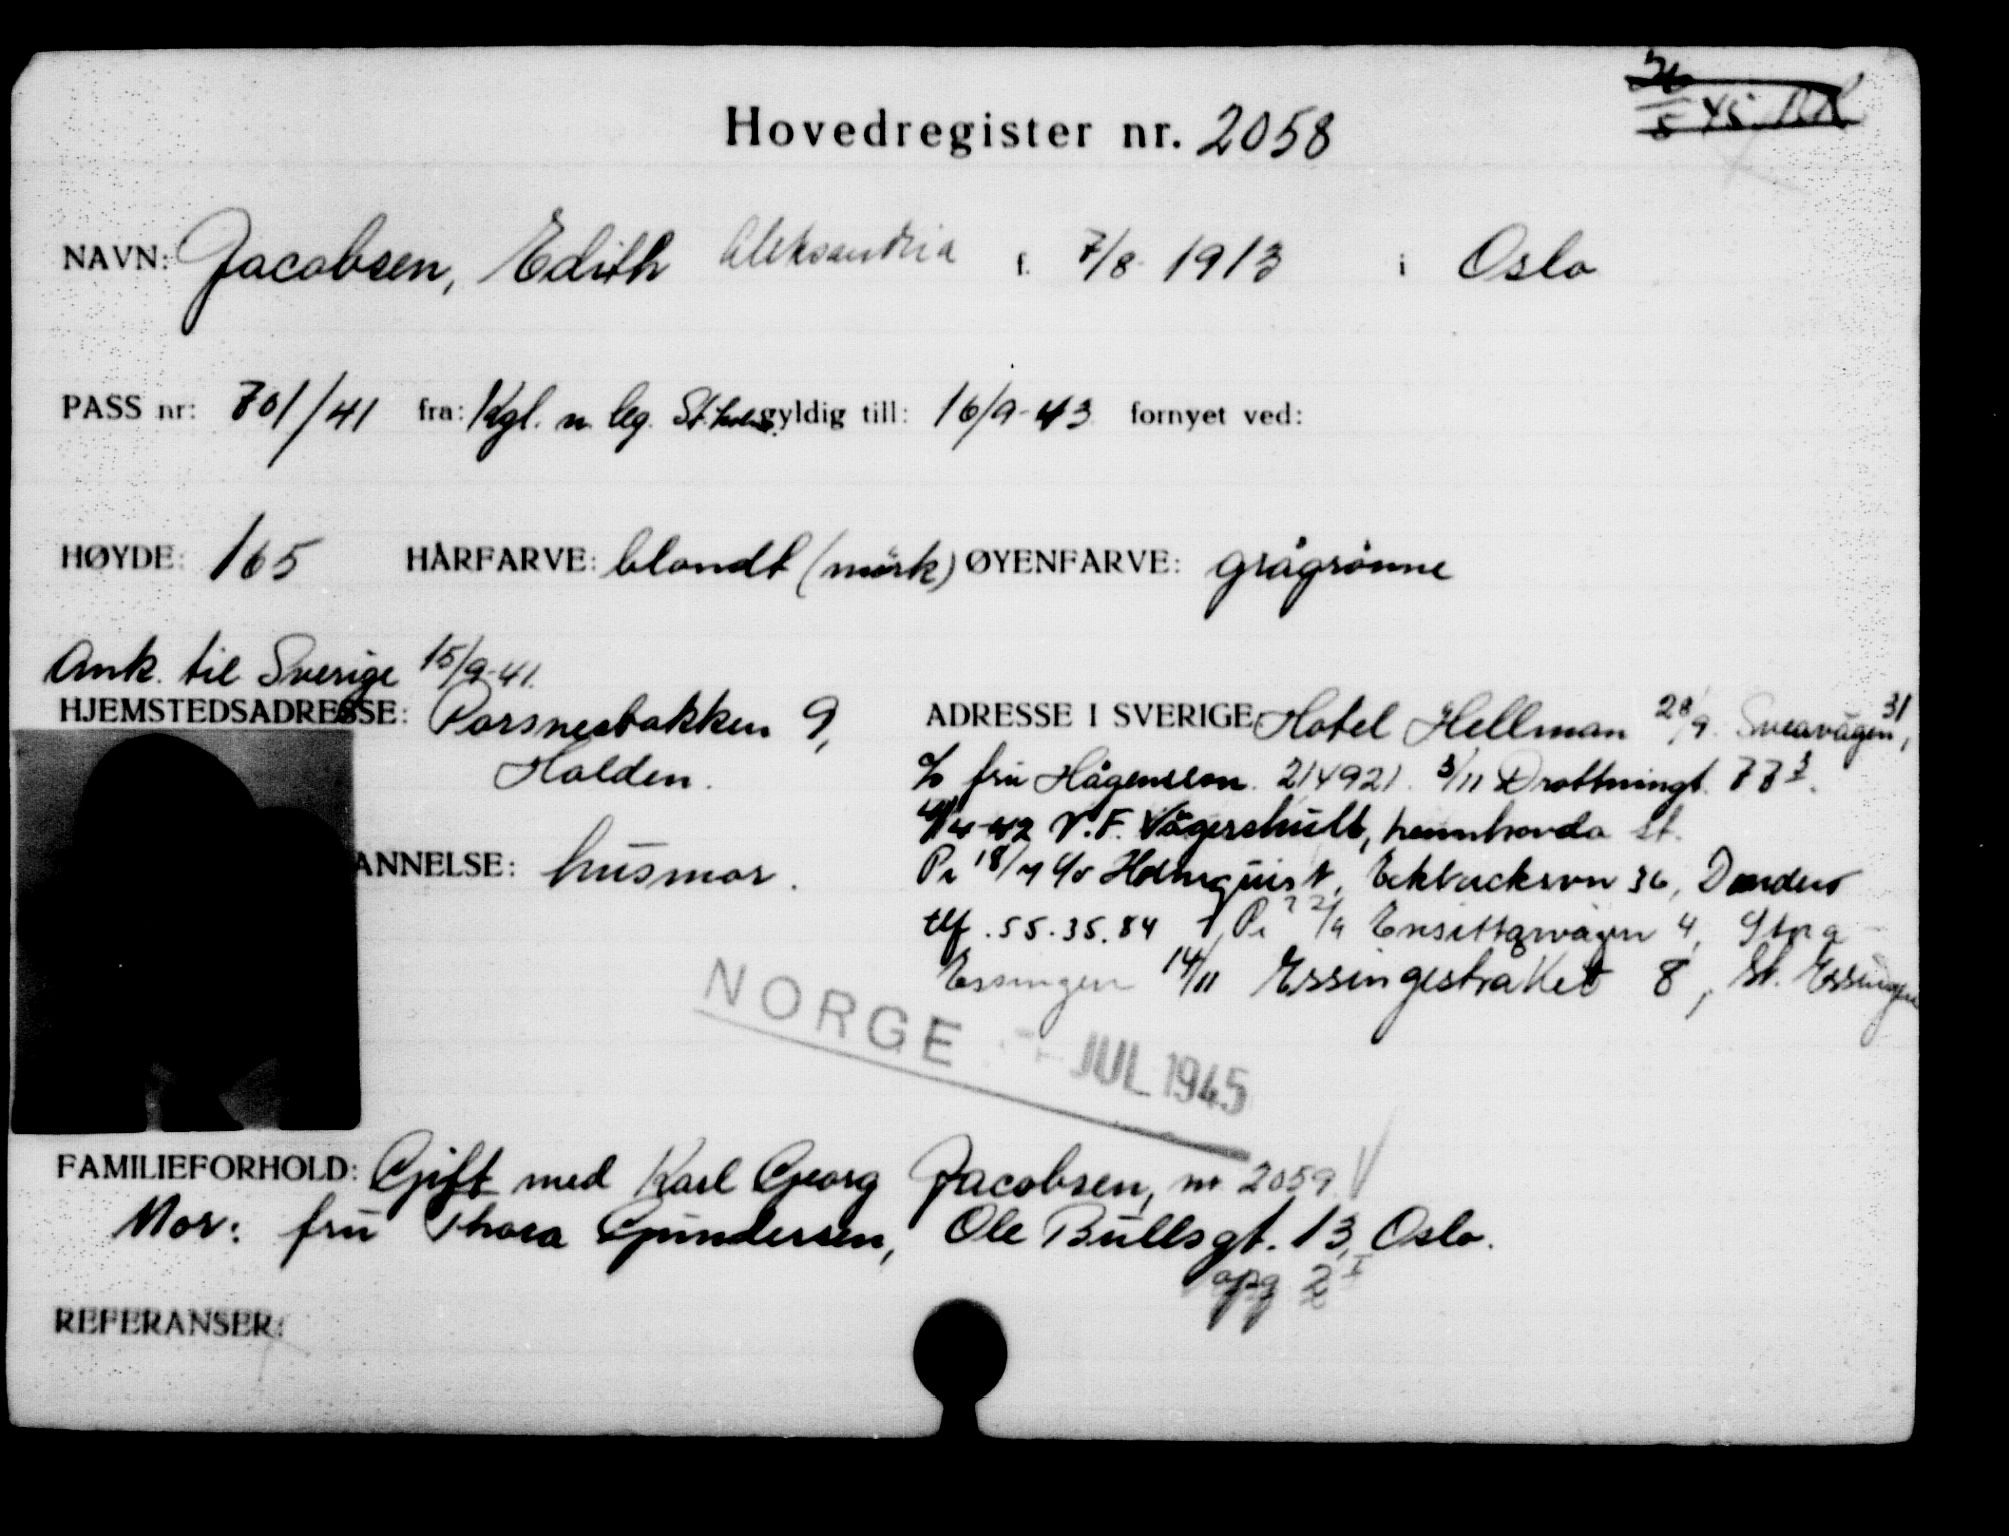 Hovedregister nr. 2058
NAVN: Jacobsen, Edith Aleksandria f. 7/8 1913 i Oslo
PASS nr: 701/41 fra: Kgl. n. leg. St.holm gyldig till: 16/9-43 fornyet ved:
HØYDE: 165 HÅRFARVE: blondt (mörk) ØYENFARVE: grågrönne
Ank. til Sverige 15/9-41.
HJEMSTEDSADRESSE: Porsnesbakken 9,
Halden.
ADRESSE I SVERIGE: Hotel Hellman 28/9 Sveavägen 31,
c/o fru Hågensen 214921. 3/11 Drottningt. 77
4-42 V.F. Vägershult, st.
18/ c/o Holmquist, 36,
tlf. 55.35.84 4, Stora
Essingen 14/11 Essingestråket 8, St. Essingen
ANNELSE: husmor.
NORGE JUL 1945
FAMILIEFORHOLD: Gift med Karl Georg Jacobsen, nr 2059
Mor: fru Thora Gundersen, Ole Bullsgt. 13, Oslo.
opg 2 I
REFERANSER: